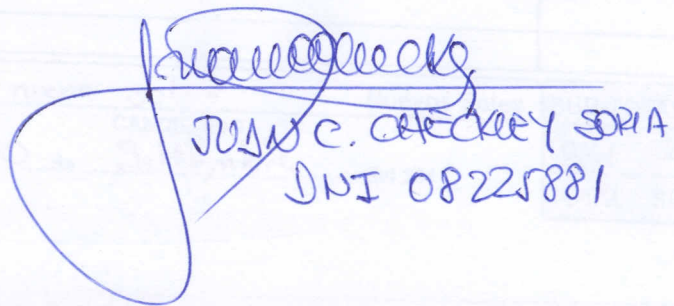 JUAN C. CHECKLEY SORIA
DNI 08225881